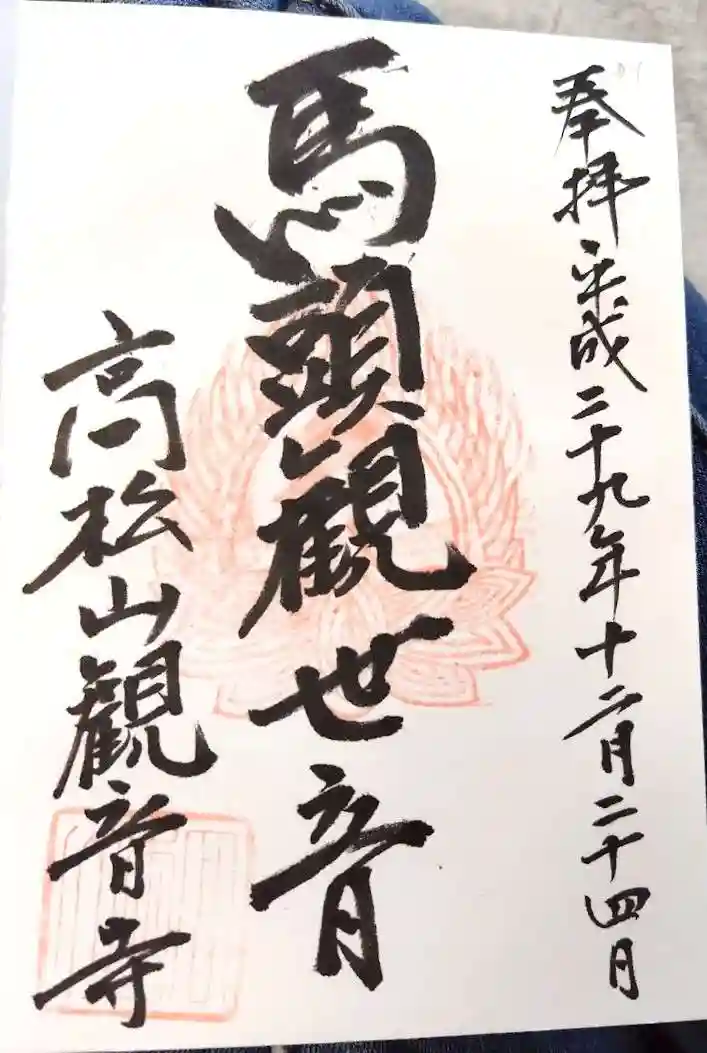 奉拝 平成二十九年十二月二十四日
馬頭觀世音
高松山觀音寺